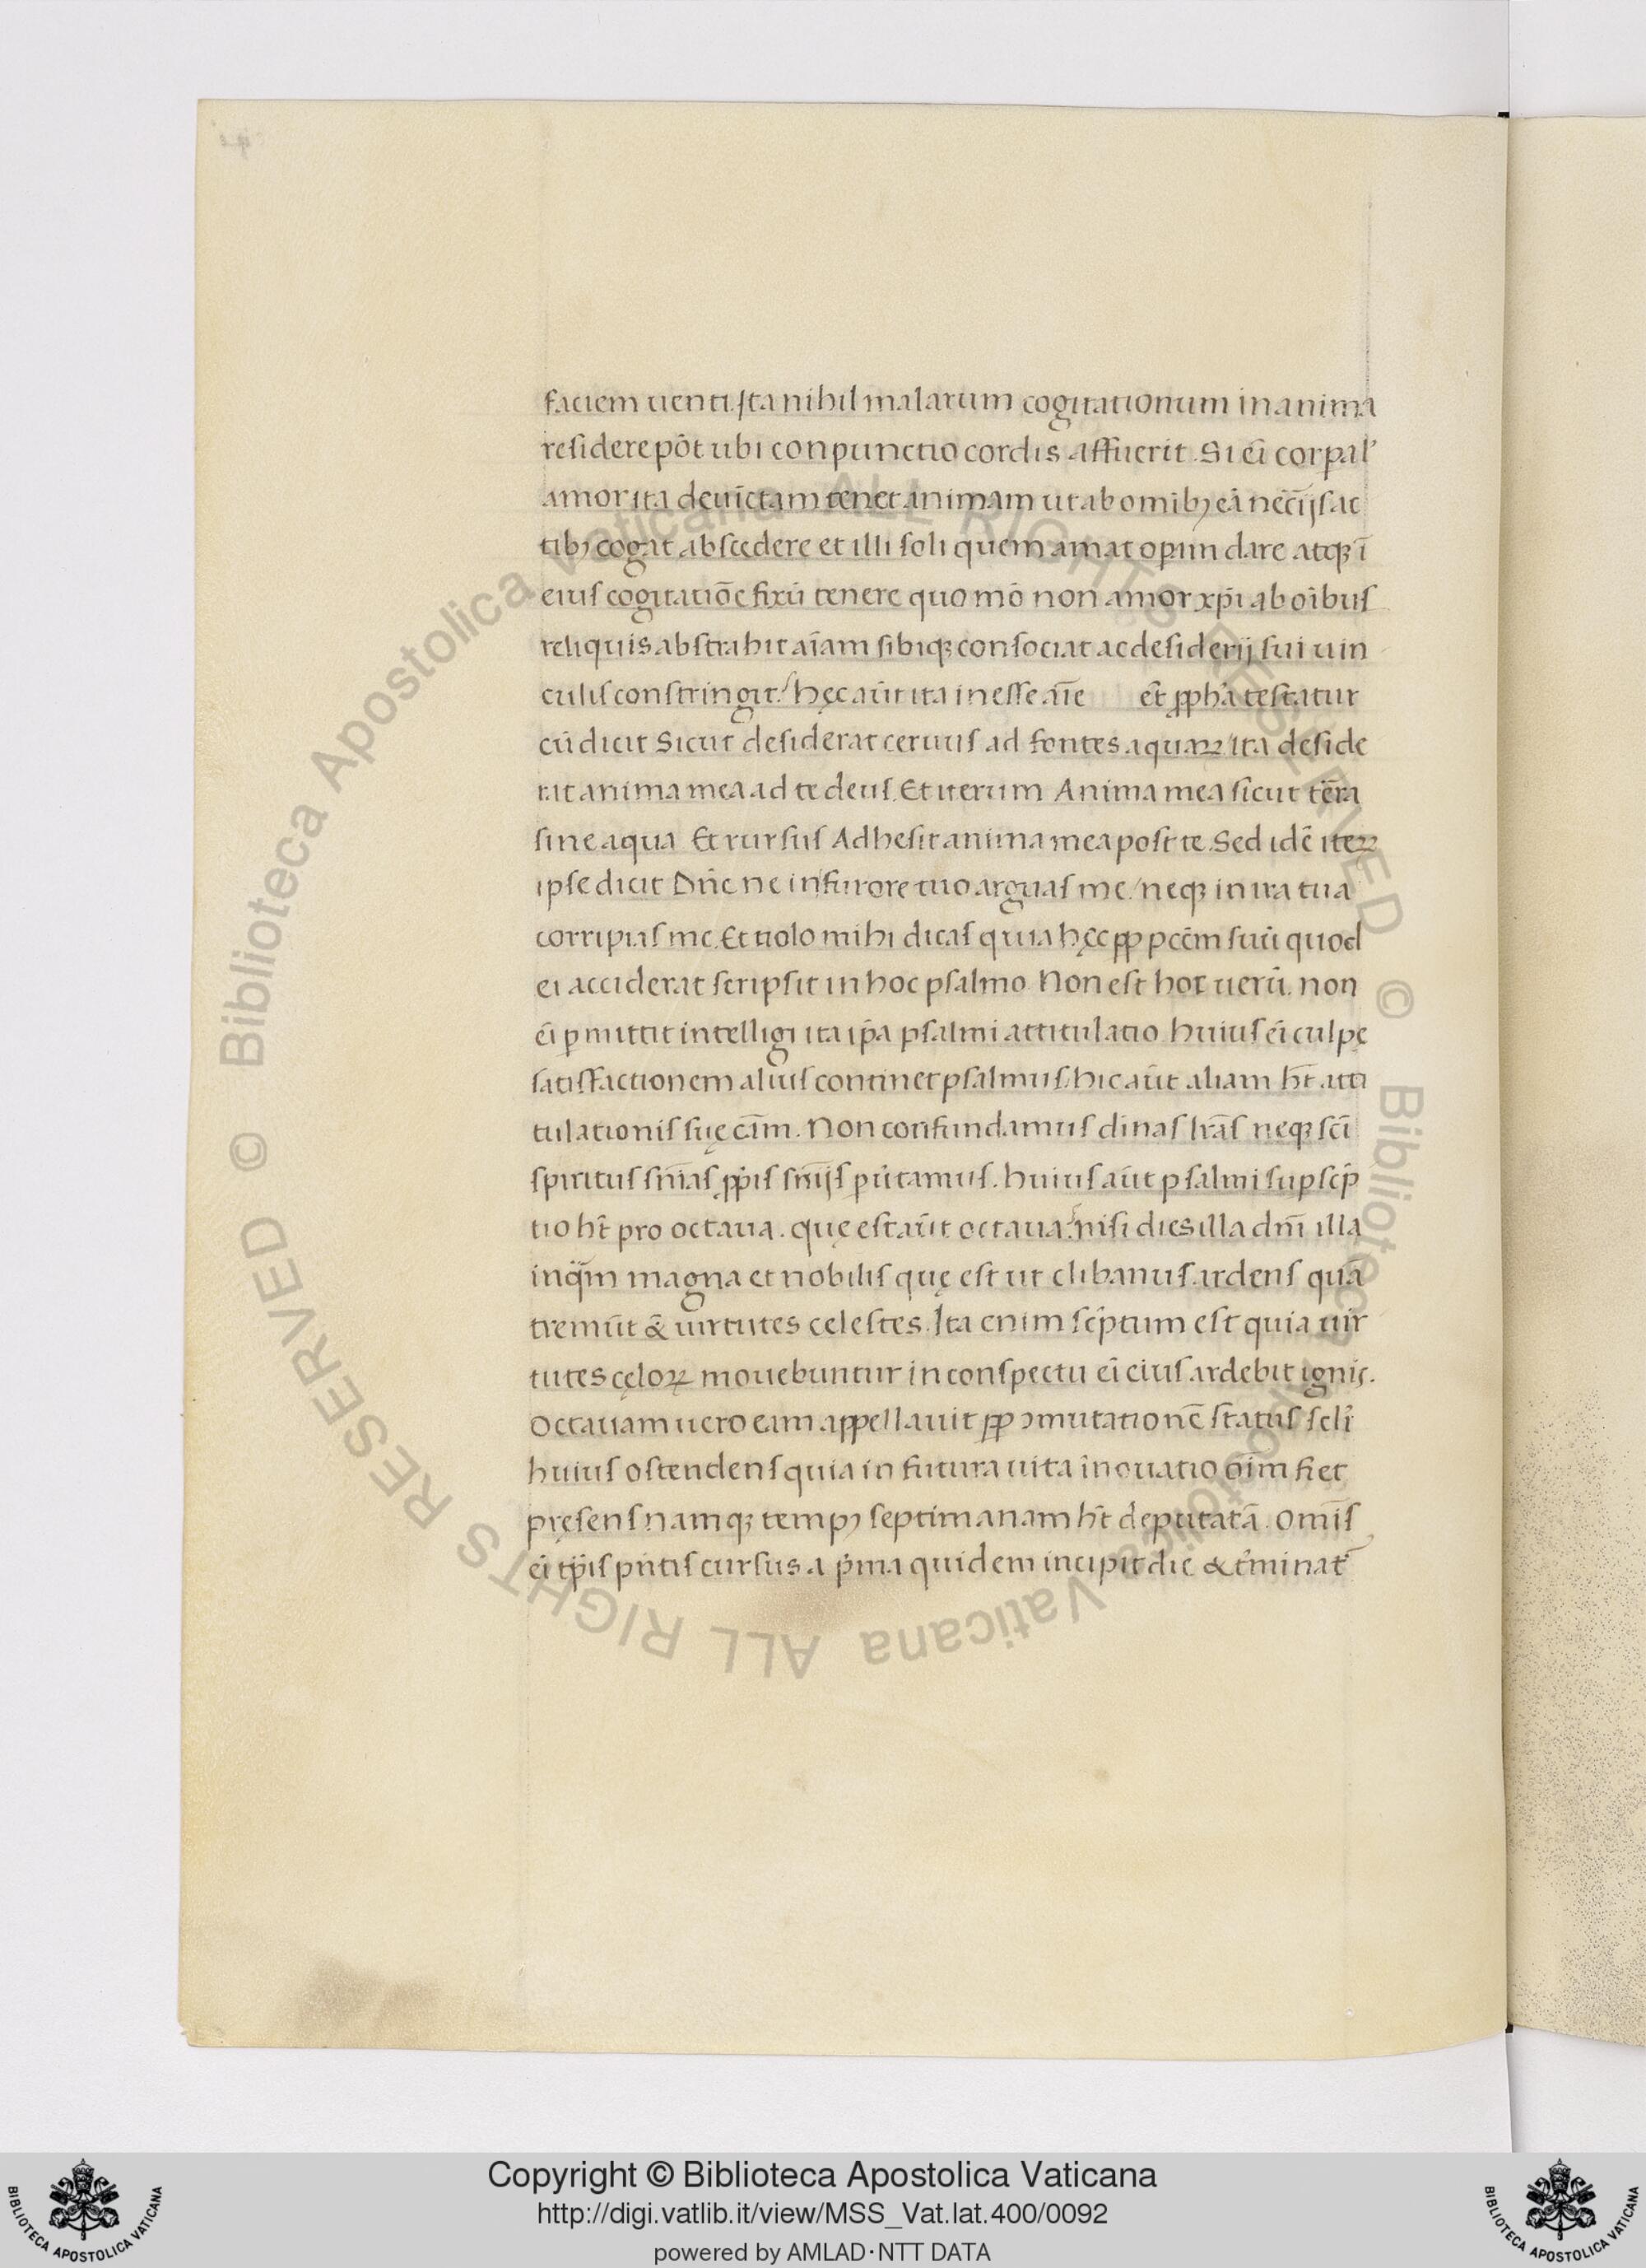 faciem uenti. Ita nihil malarum cogitationum in anima
residere pōt ubi conpunctio cordis affuerit. Si ei̅ corpal'
amor ita deuīctam tenet animam ut ab omībꝫ eā nec̄ijs ac
tibꝫ cogat abscedere et illi soli quem amat opim dare atqꝫ ī
eius cogitatiōe fixū tenere quo mō non amor xp̄i ab oībus
reliquis abstrahit aīam sibiqꝫ consociat ac desiderij sui uin
culis constringit? hęc aūt ita inesse aīe et ꝓpha testatur
cū dicit Sicut desiderat ceruus ad fontes aquaꝝ ita deside
rat anima mea ad te deus. Et iterum Anima mea sicut tēra
sine aqua Et rursus Adhesit anima mea post te. Sed idē iteꝝ
ipse dicit Dn̄e ne in furore tuo arguas me / neqꝫ in ira tua
corripias me. Et nolo mihi dicas quia hęc ꝓp pcc̄m suū quod
ei acciderat scripsit in hoc psalmo Non est hoc uerū. non
ei̅ ꝑmittit intelligi ita ip̄a psalmi attitulatio huius ei̅ culpę
satisfactionem alius continet psalmus / hic aūt aliam hт̄ atti
tulationis suę cām. Non confundamus diīnas lr̄as neqꝫ sc̄i
spiritus sn̄ias ꝓpīs sn̄ijs putamus. huius aūt psalmi supsc̄p
tio ht̄ pro octaua. quę est aūt octaua? nisi dies illa dn̄i illa
inq̄m magna et nobilis quę est ut clibanus ardens quā
tremūt & uirtutes celestes. Ita enim sc̄ptum est quia uir
tutes cęloꝝ mouebuntur in conspectu ei̅ eius ardebit ignis.
Octauam uero eam appellauit ꝓp ꝯmutationē status sclī
huius ostendens quia in futura uita īnouatio oīm fiet
pręsens namqꝫ tempꝫ septimanam ht̄ deputatā. Omīs
ei̅ tp̄is pn̄tis cursus a pͥma quidem incipit die & t̄minat᷑
Copyright © Biblioteca Apostolica Vaticana
http://digi.vatlib.it/view/MSS_Vat.lat.400/0092
powered by AMLAD·NTT DATA
BIBLIOTECA APOSTOLICA VATICANA
BIBLIOTECA APOSTOLICA VATICANA
© Biblioteca Apostolica Vaticana ALL RIGHTS RESERVED © Biblioteca Apostolica Vaticana ALL RIGHTS RESERVED